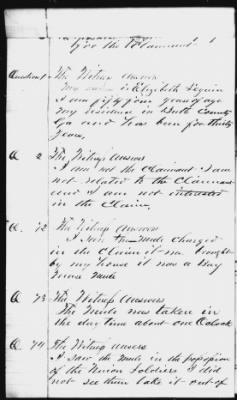 for the Claimant
Question 1 The Witness answers
My name is Elizabeth
I am fifty four years of age
My residence in Butts County
Ga and has been for thirty
years,
Q. 2 The Witness Answers
I am not the Claimant I am
not related to the Claimant
and I am not interested
in the Claim,
Q. 72 The Witness Answers
I saw the mule charged
in the claim it was brought
by my house it was a Bay
mare mule
Q. 73 The Witness Answers
The Mule was taken in
the day time about one Oclock
Q. 74 The Witness answers
I saw the mule in the possession
of the Union Soldiers I did
not see them take it out of